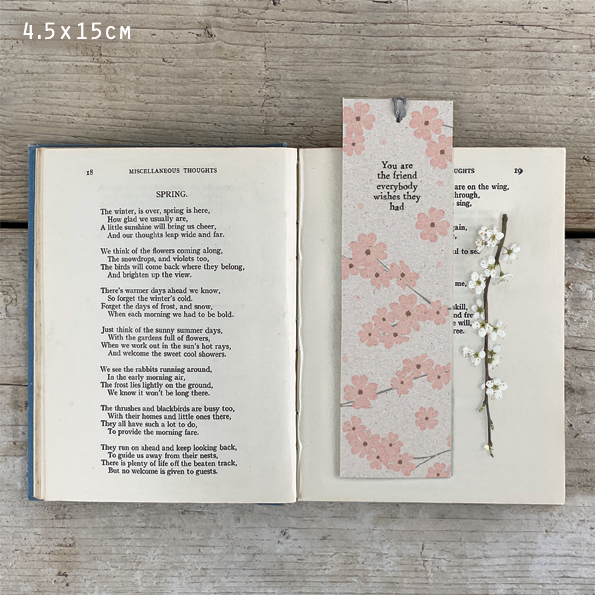 4.5x15cm
18 MISCELLANEOUS THOUGHTS
SPRING.
The winter, is over, spring is here,
How glad we usually are,
A little sunshine will bring us cheer,
And our thoughts leap wide and far.
We think of the flowers coming along,
The snowdrops, and violets too,
The birds will come back where they belong,
And brighten up the view.
There's warmer days ahead we know,
So forget the winter's cold.
Forget the days of frost, and snow,
When each morning we had to be bold.
Just think of the sunny summer days,
With the gardens full of flowers,
When we work out in the sun's hot rays,
And welcome the sweet cool showers.
We see the rabbits running around,
In the early morning air,
The frost lies lightly on the ground,
We know it won't be long there.
The thrushes and blackbirds are busy too,
With their homes and little ones there,
They all have such a lot to do,
To provide the morning fare.
They run on ahead and keep looking back,
To guide us away from their nests,
There is plenty of life off the beaten track,
But no welcome is given to guests.
You are
the friend
everybody
wishes they
had
UGHTS 19
are on the wing,
through,
sing,
ain,
me.
skill,
nd fre
will,